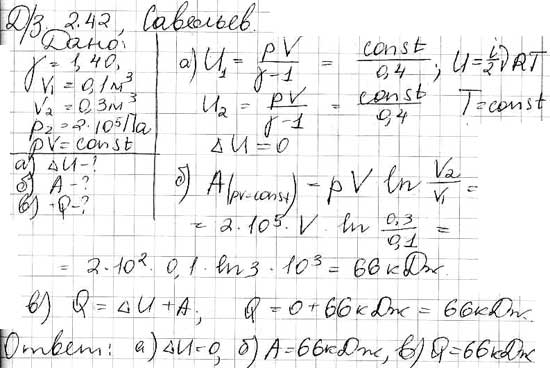 Д/З. 2.42, Савельев.
Дано:
γ = 1,40,
V₁ = 0,1 м³
V₂ = 0,3 м³
p₂ = 2·10⁵ Па
pV = const
а) ΔU - ?
б) A - ?
в) Q - ?
а) U₁ = pV/(γ-1) = const/0,4 ; U = i/2 νRT
U₂ = pV/(γ-1) = const/0,4 T = const
ΔU = 0
б) A(pv=const) = pV ln V₂/V₁ =
= 2·10⁵· V · ln 0,3/0,1 =
= 2·10²· 0,1 · ln 3 · 10³ = 66 кДж.
в) Q = ΔU + A; Q = 0 + 66 кДж = 66 кДж.
Ответ: а) ΔU = 0, б) A = 66 кДж, в) Q = 66 кДж